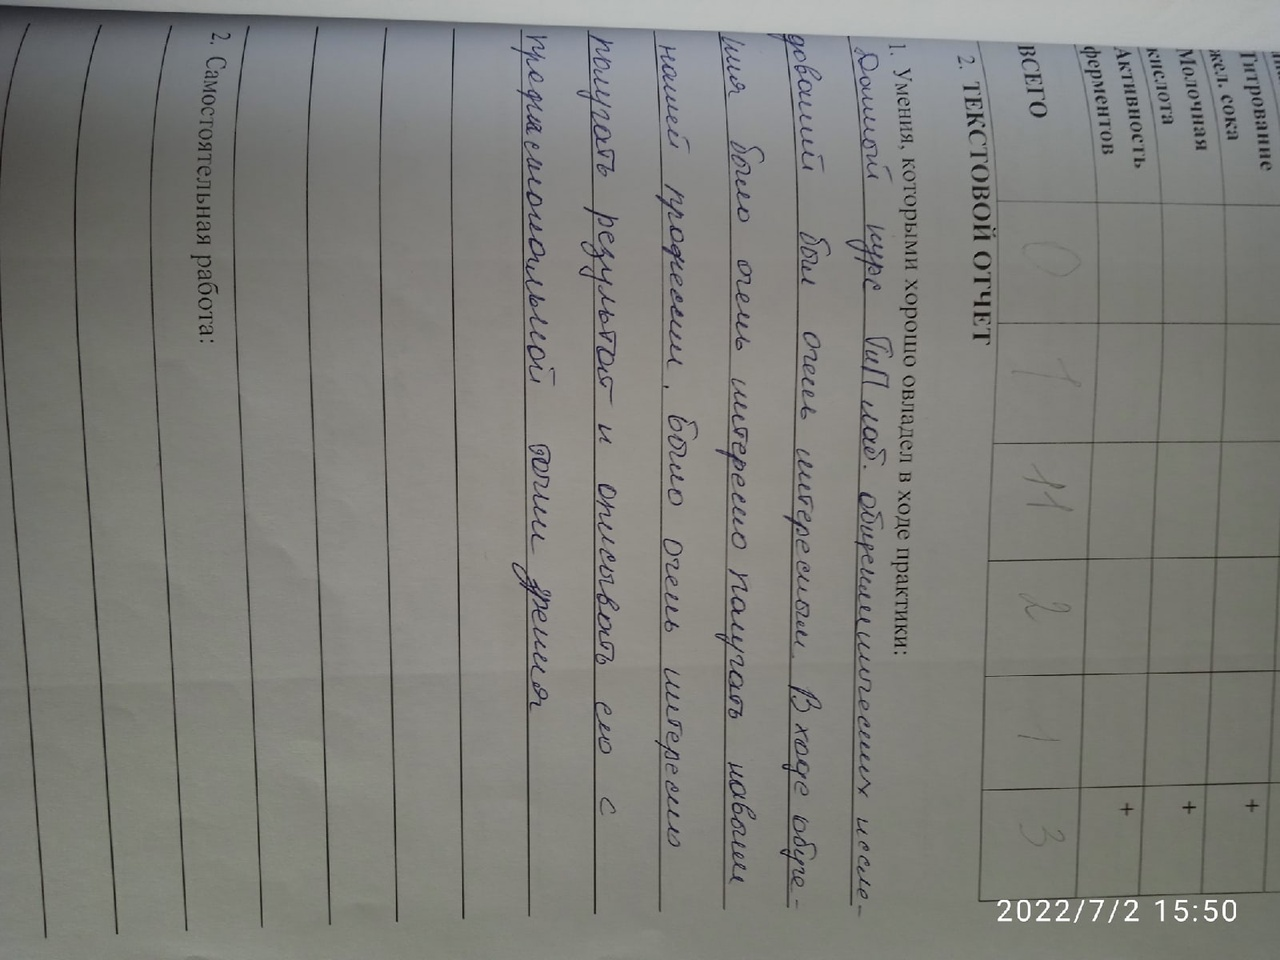 Титрование
жел. сока
+
Молочная
кислота
+
Активность
ферментов
+
ВСЕГО 0 1 11 2 1 3
2. ТЕКСТОВОЙ ОТЧЕТ
1. Умения, которыми хорошо овладел в ходе практики:
Данный курс ТиП лаб. общеклинических иссле-
дований был очень интересным. В ходе обуче-
ния было очень интересно получать навыки
нашей профессии. Было очень интересно
получать результат и описывать его с
профессиональной точки зрения
2. Самостоятельная работа:
2022/7/2 15:50